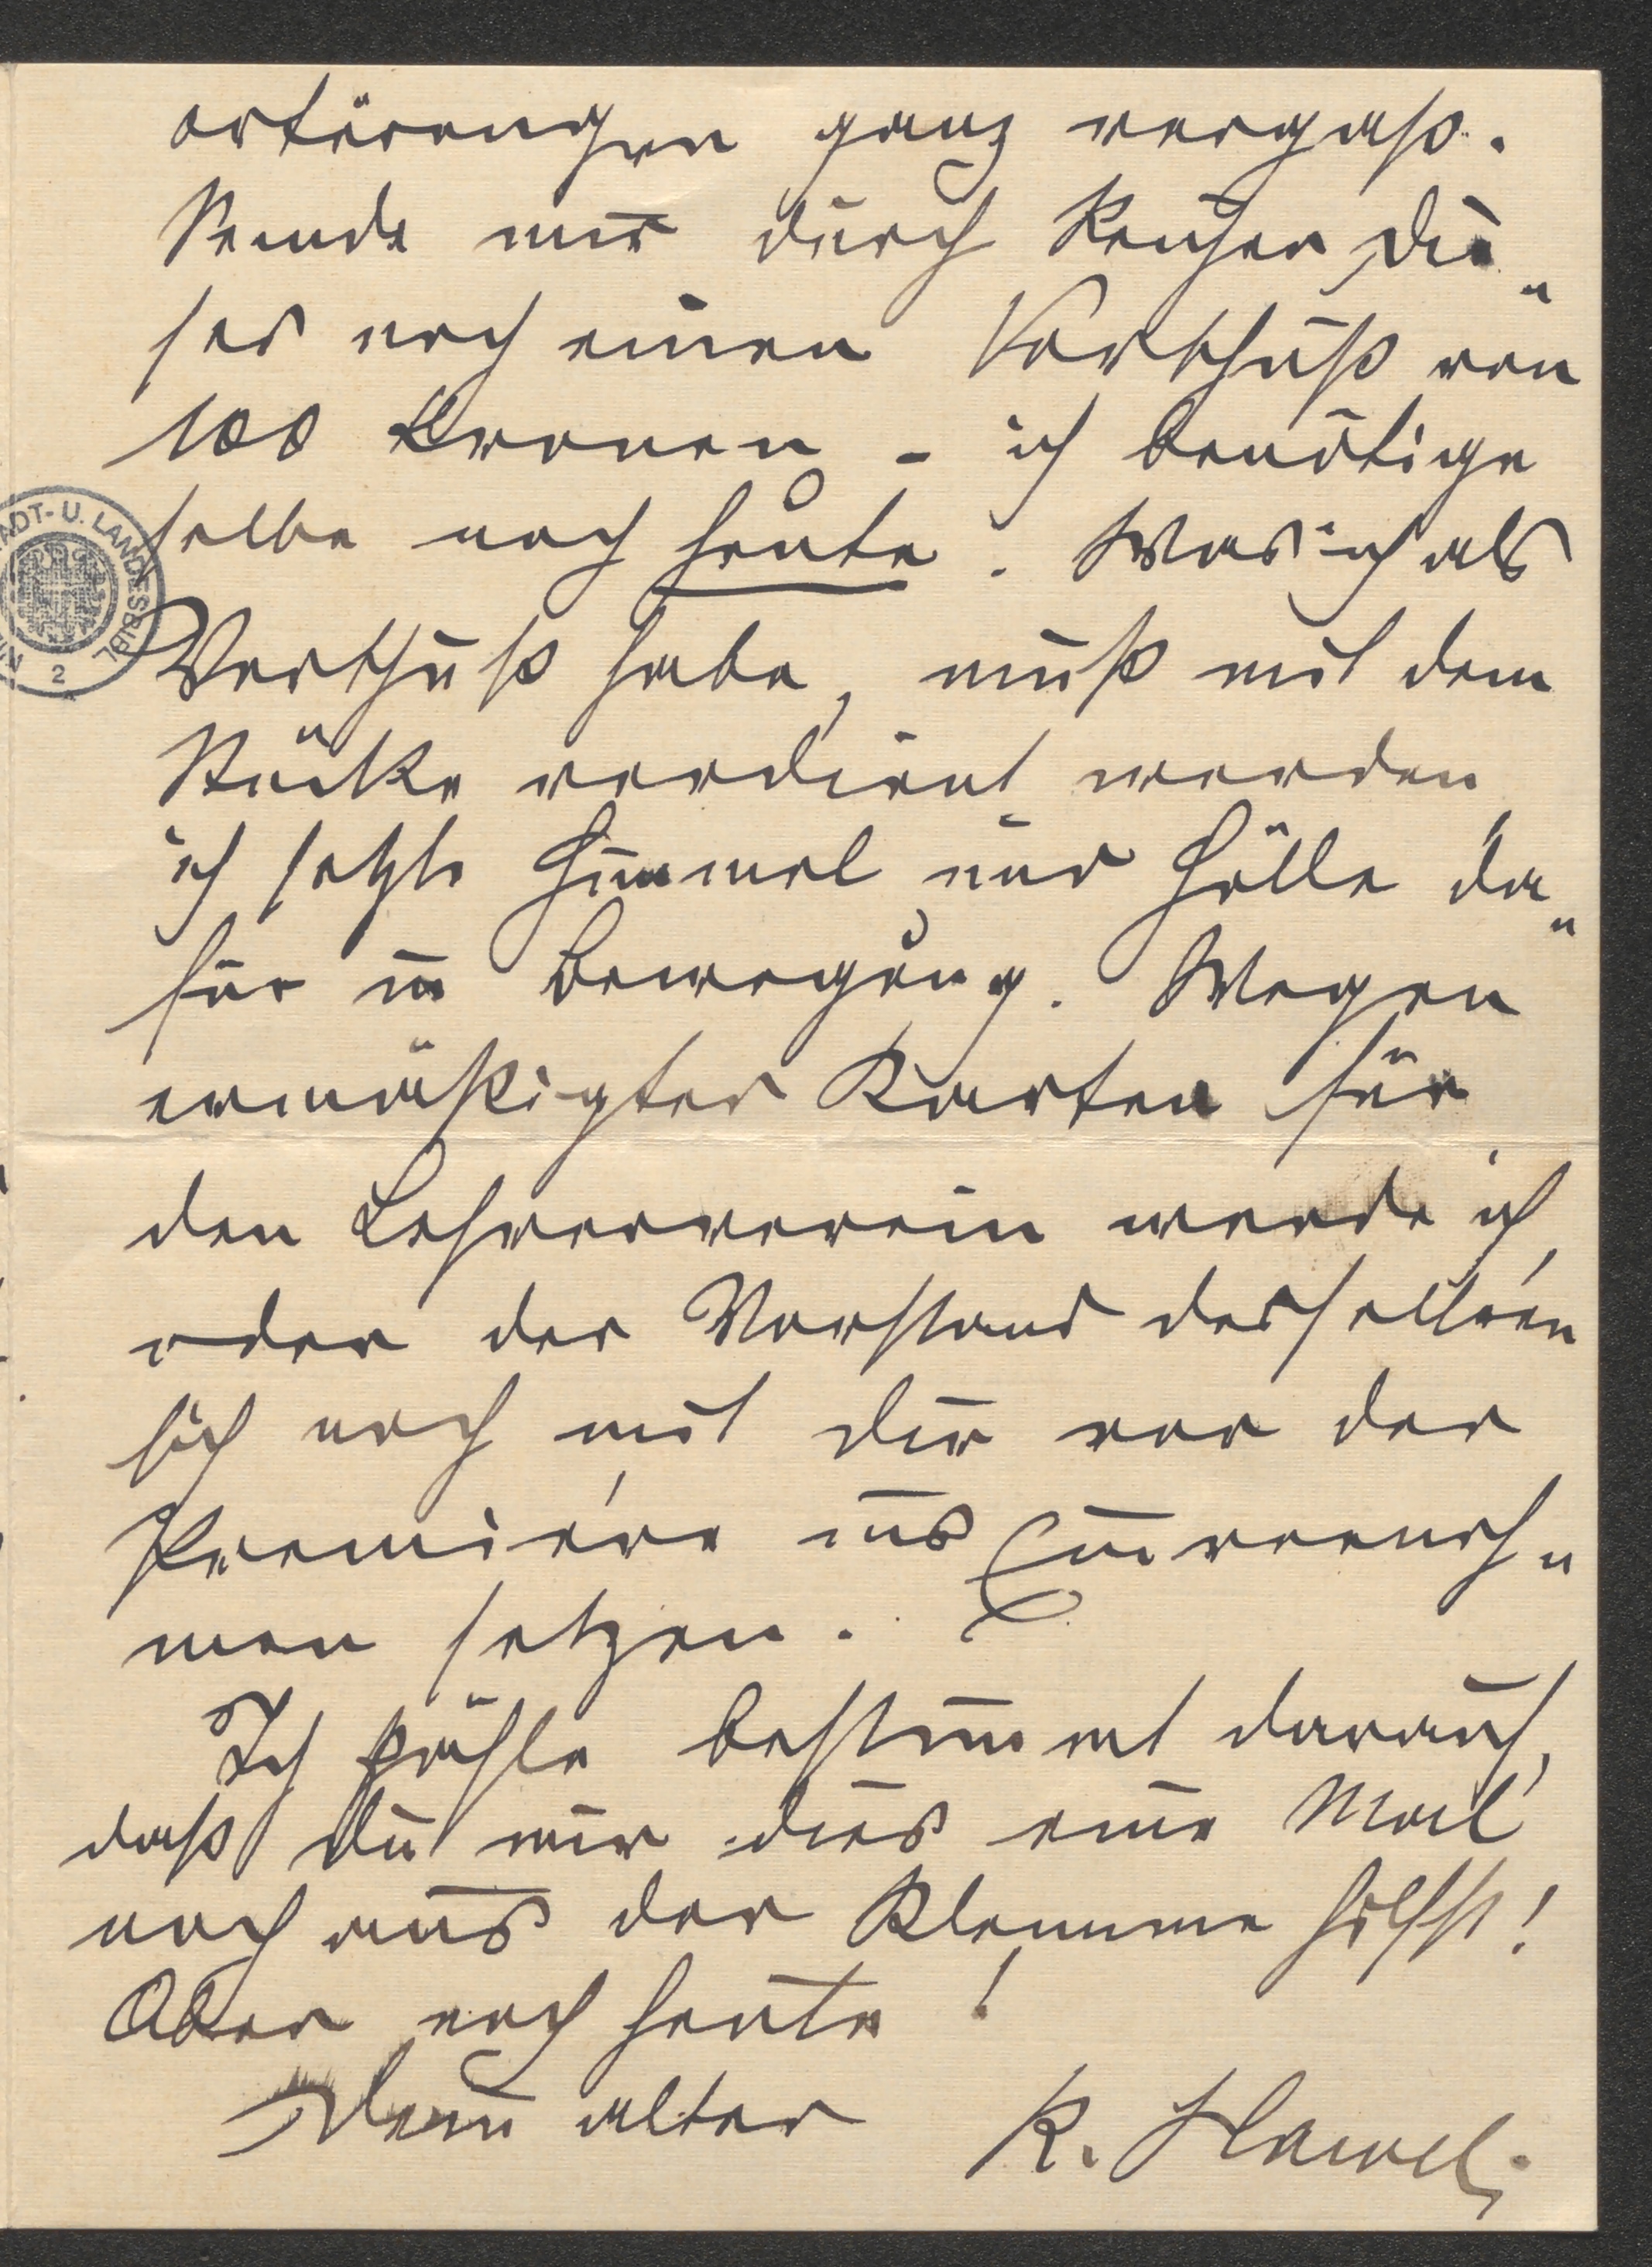 örterungen ganz vergaß.
Sende mir durch die„
ses noch einen Vorschuß von
100 Kronen – ich benötige
selbe noch heute. Was ich als
Vorschuß habe, muß mit dem
Stücke verdient werden
ich setzte Himmel und Hölle da„
für in Bewegung. Wegen
ermäßigter Karten für
den Lehrerverein werde ich
oder der Vorstand desselben
sich noch mit dir vor der
Premiére ins Einverneh„
men setzen.
Ich zähle bestimmt darauf,
daß Du mir dies eine Mal
noch aus der Klemme hilfst!
Aber noch heute!
Dein alter R. Hawel.
ADT- U. LANDESBIBL
2